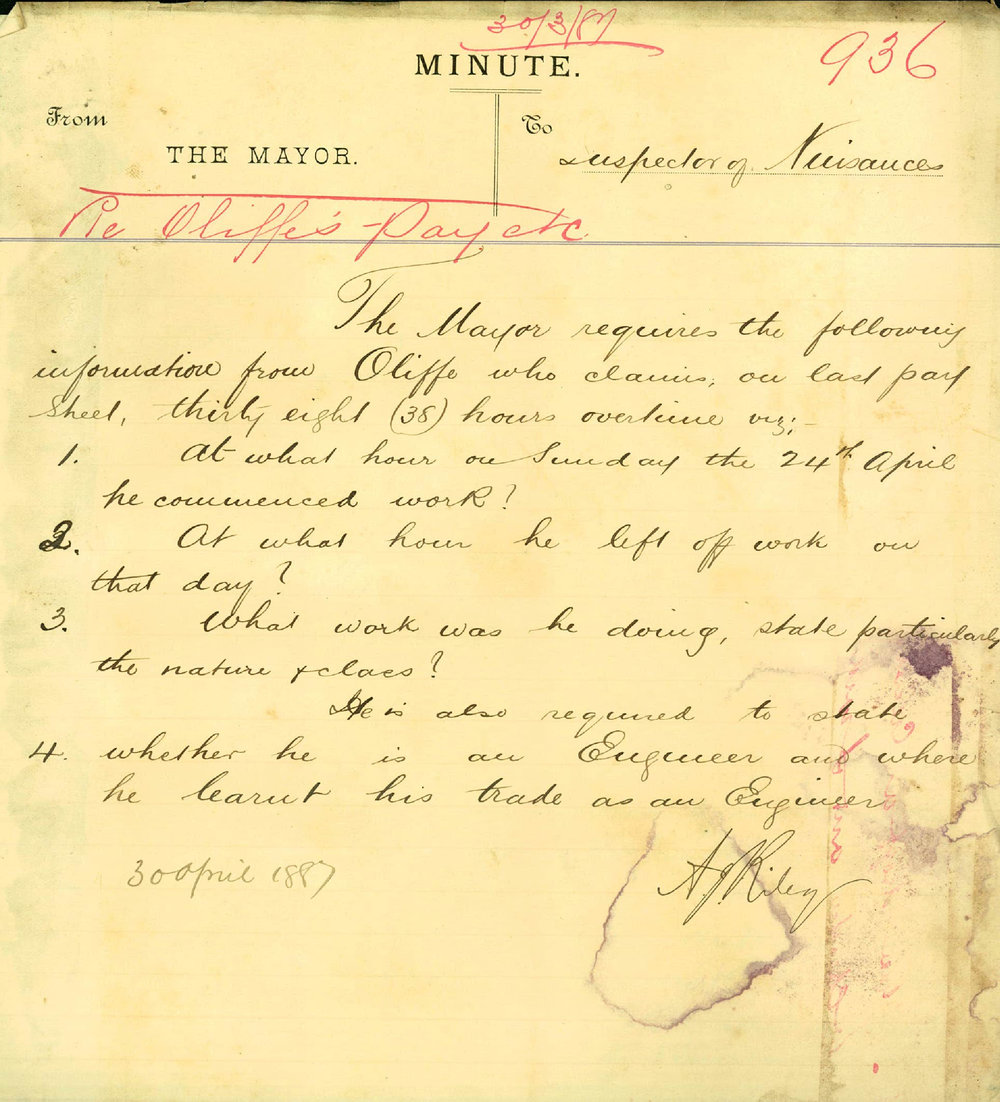 30/3/87
936
MINUTE.
From
To
THE MAYOR.
Inspector of Nuisances
Re Oliffe's Pay etc
The Mayor requires the following
information from Oliffe who claims, on last pay
Sheet, thirty eight (38) hours overtime viz;-
1. At what hour on Sunday the 24th April
he commenced work?
2. At what hour he left off work on
that day?
3. What work was he doing, state particularly
the nature & class?
He is also required to state
4. whether he is an Engineer and where
he learnt his trade as an Engineer
A J Riley
30 April 1887